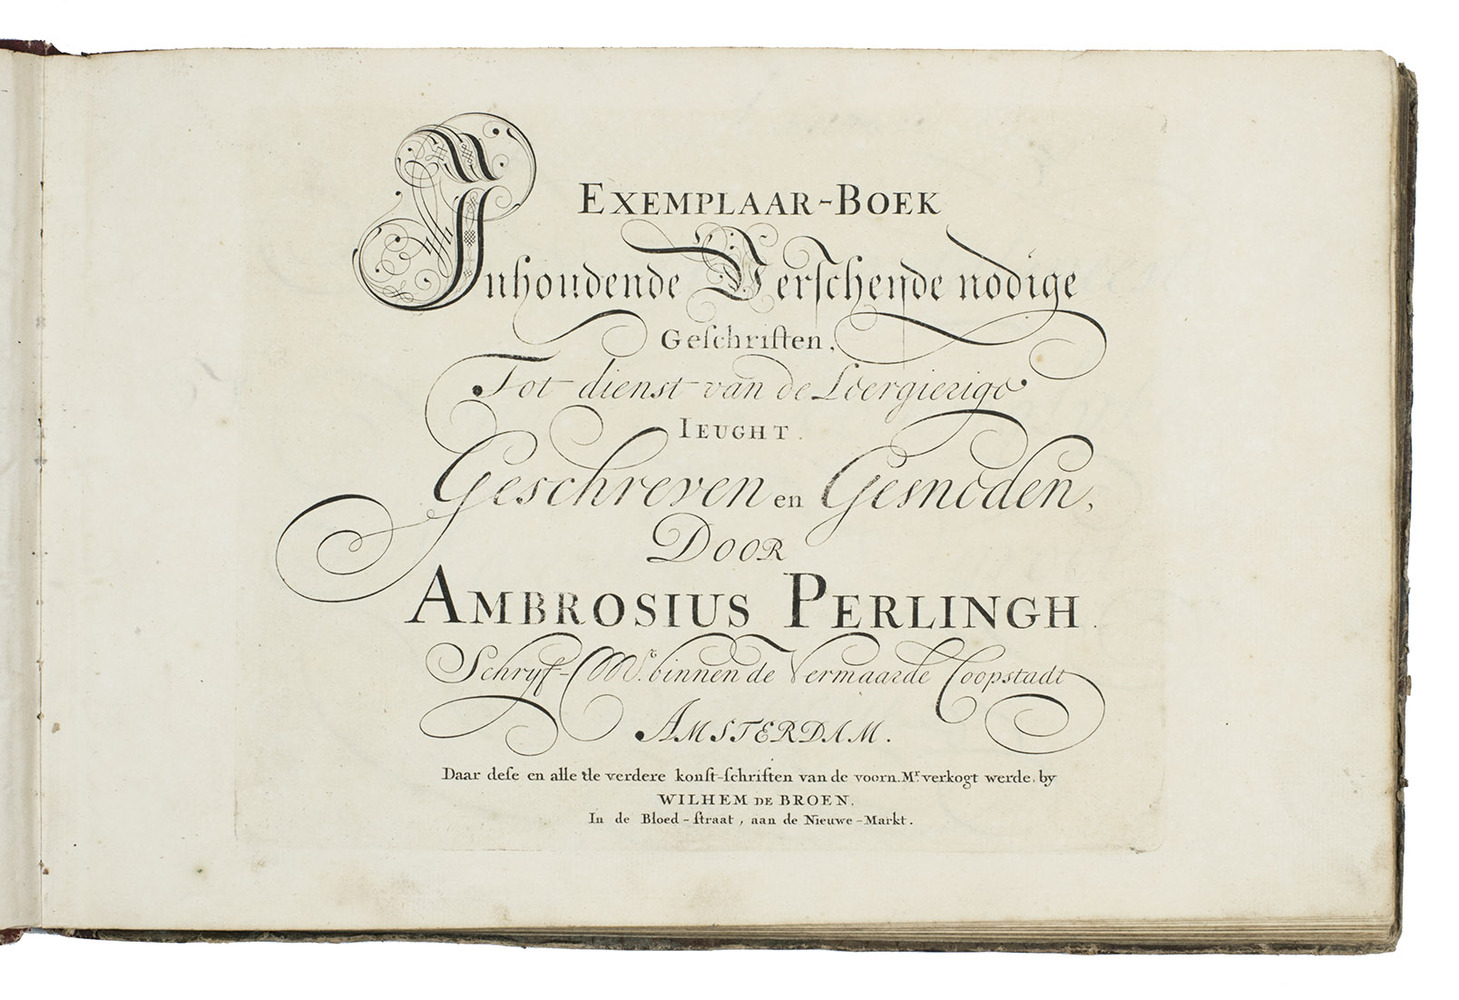 EXEMPLAAR-BOEK
Inhoudende Verscheyde nodige
Geſchriften,
Tot dienst van de Leergierige
IEUGHT.
Geschreven en Gesneden,
DOOR
AMBROSIUS PERLINGH.
Schryf-Mr. binnen de Vermaarde Coopstadt
AMSTERDAM.
Daar deſe en alle de verdere konſt-ſchriften van de voorn. Mr. verkogt werde, by
WILHEM DE BROEN.
In de Bloed-ſtraat, aan de Nieuwe-Markt.